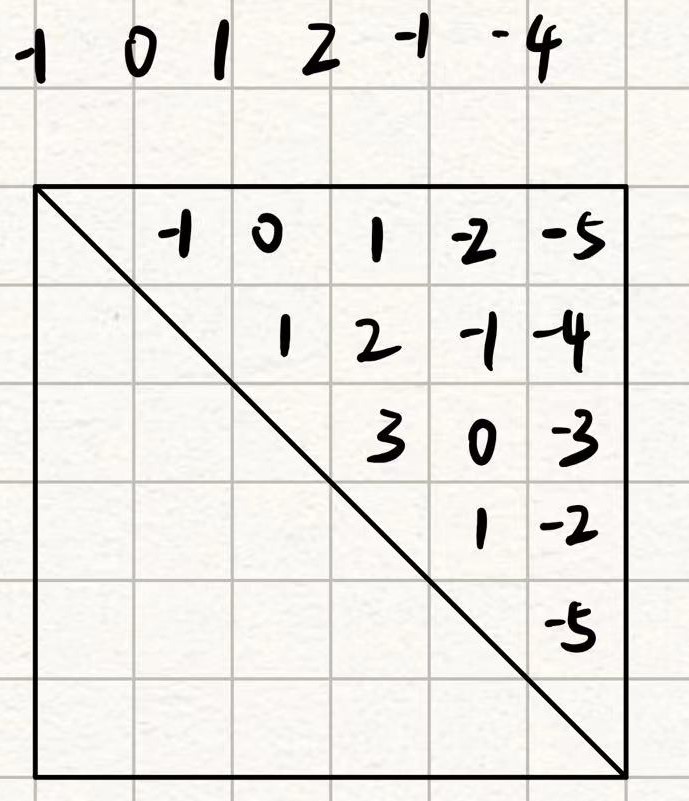 -1 0 1 2 -1 -4
-1 0 1 -2 -5
1 2 -1 -4
3 0 -3
1 -2
-5